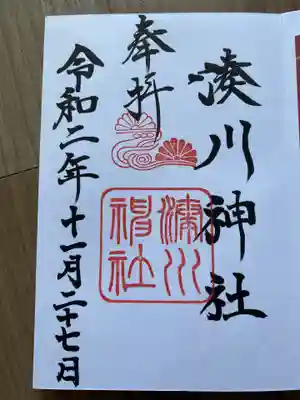 奉拝
湊川神社
湊川
神社
令和二年十一月二十七日